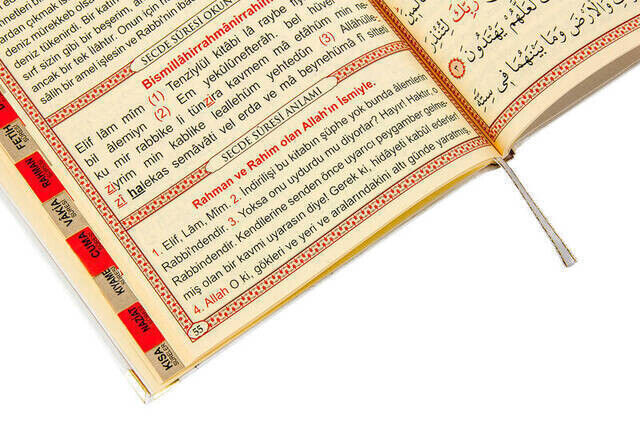 deniz mürekkep olsa
deniz tükenirdi. Bir katı
sırf sizin gibi bir beşerim, an
ancak bir tek ilâhtır. Onun için h
sâlih bir amel işlesin ve Rabbi'nin ibad
SECDE SÛRESİ OKUN
Bismillâhirrahmânirrahîm
Elif lâm mîm (1) Tenzîlül kitâbi lâ raybe
bil âlemiyn (2) Em yekûlûnefterâh. bel h
ku mir rabbike li tünzira kavmem mâ etâhüm min ne
ziyrim min kablike leallehüm yehtedûn (3) Allâhülle
zî halekas semâvâti vel erda ve mâ beynehümâ fî sitteti
SECDE SÛRESİ ANLAMI
Rahman ve Rahim olan Allah'ın ismiyle.
1. Elif, Lâm, Mîm. 2. İndirilişi bu kitabın şüphe yok bunda âlemlerin
Rabbi'ndendir. 3. Yoksa onu uydurdu mu diyorlar? Hayır! Haktır, o
Rabbindendir. Kendilerine senden önce uyarıcı peygamber gelme-
miş olan bir kavmi uyarasın diye! Gerek ki, hidâyeti kabul ederler!
4. Allah O ki, gökleri ve yeri ve aralarındakini altı günde yaratmış,
55
FETİH
RAHMAN
VAKIA
CUMA
KIYAME
NAZİAT
KISA
SURELER
رَبِّكَ لِتُنْذِرَ
لَعَلَّهُمْ يَهْتَدُونَ
وَالْأَرْضَ وَمَا بَيْنَهُمَا فِي سِتَّةِ